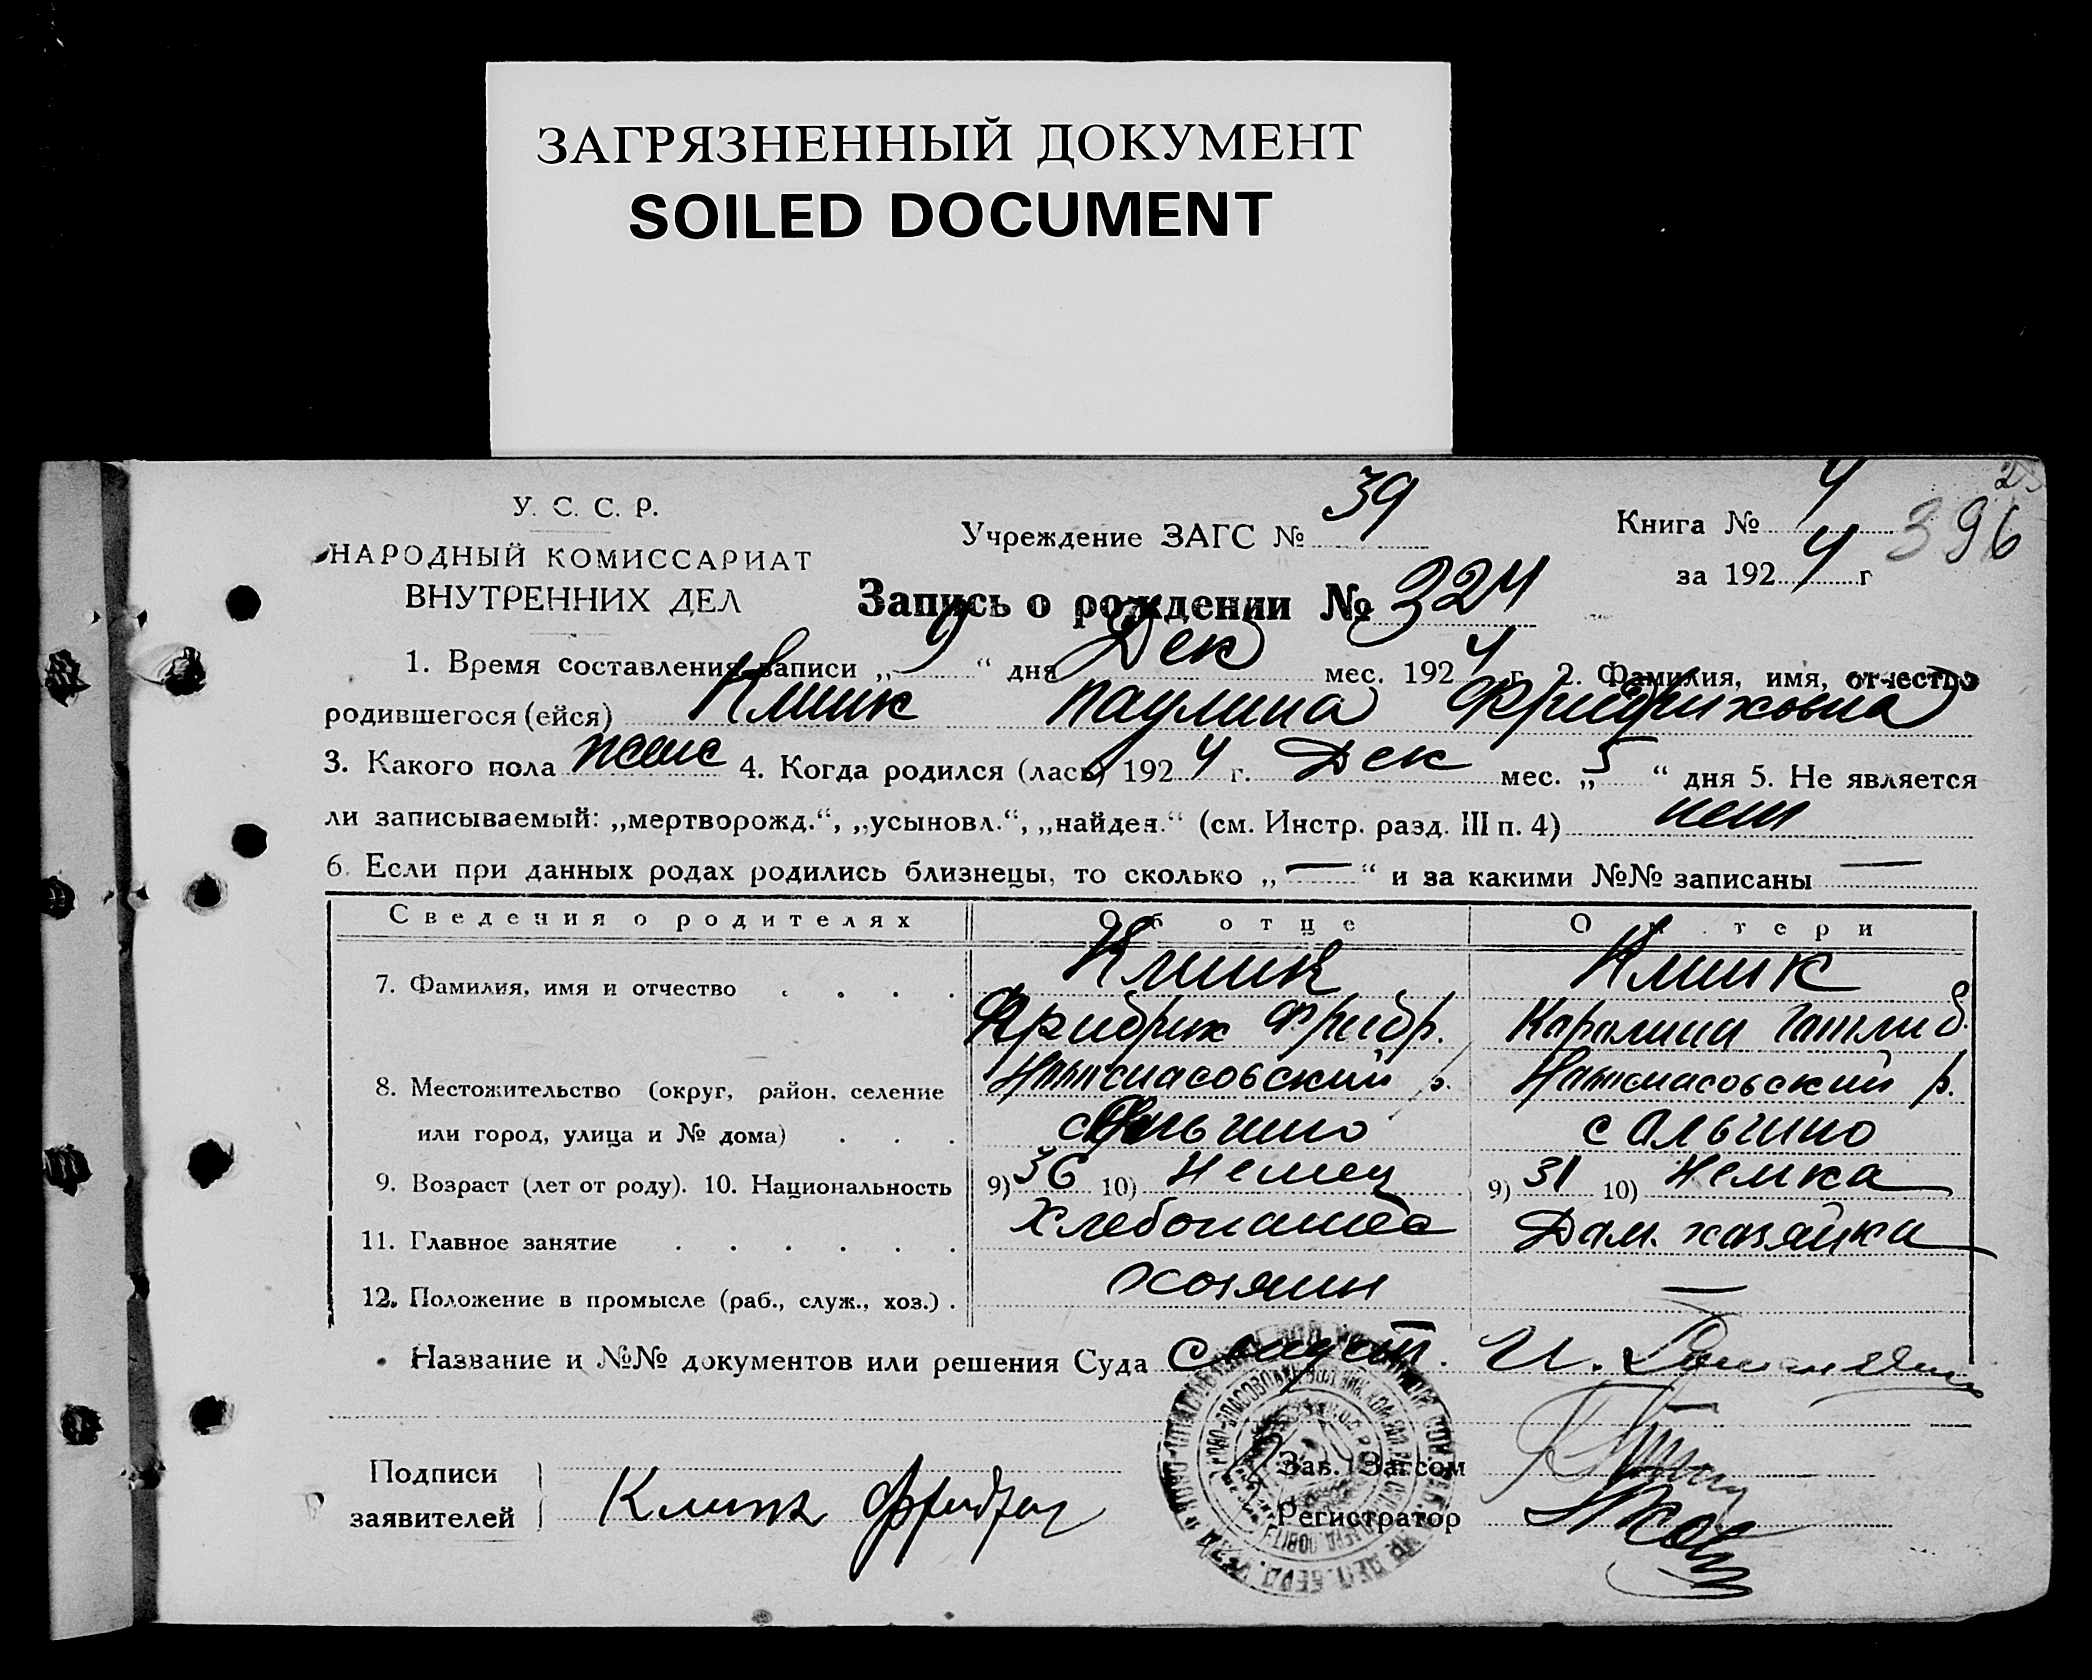 ЗАГРЯЗНЕННЫЙ ДОКУМЕНТ
SOILED DOCUMENT
У. С. С. Р.
НАРОДНЫЙ КОМИССАРИАТ
ВНУТРЕННИХ ДЕЛ
Учреждение ЗАГС № 39
Книга № 4
за 1924 г
396
Запись о рождении № 324
1. Время составления записи „9“ дня Дек мес. 1924 г. 2. Фамилия, имя, отчество
родившегося (ейся) Клинк Паулина Фридриховна
3. Какого пола женс 4. Когда родился (лась) 1924 г. Дек мес. „5“ дня 5. Не является
ли записываемый: „мертворожд.“, „усыновл.“, „найден.“ (см. Инстр. разд. III п. 4) нет
6. Если при данных родах родились близнецы, то сколько „—“ и за какими №№ записаны —
Сведения о родителях Об отце О матери
7. Фамилия, имя и отчество . . . . Клинк Клинк
Фридрих Фридр. Каралина Готлиб.
8. Местожительство (округ, район, селение р. р.
или город, улица и № дома) . . . с Ольгино с Ольгино
9. Возраст (лет от роду). 10. Национальность 9) 36 10) Немец 9) 31 10) Немка
11. Главное занятие . . . . . . Хлебопашес Дом. хозяйка
12. Положение в промысле (раб., служ., хоз.) . хозяин —
Название и №№ документов или решения Суда
Подписи
заявителей
Клинк Фридрих
Зав. Загсом
Регистратор